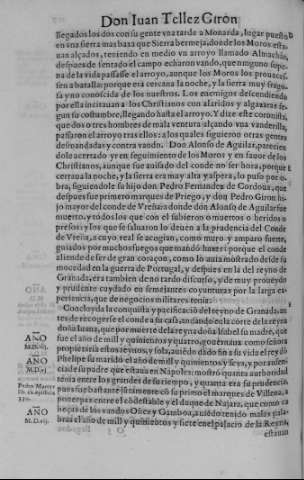 Don Iuan Tellez Giròn
llegados los dos con su gente vna tarde a Monarda, lugar puesto
en vna sierra mas baxa que Sierra bermeja, donde los Moros esta-
uan alçados, teniendo en medio vn arroyo llamado Almachàn,
despues de sentado el campo echaron vando, que ninguno so pe-
na de la vida passasse el arroyo, aunque los Moros los prouocas-
sen a batalla: porque era cerca la noche, y la sierra muy frago-
sa y no conocida de los nuestros. Los enemigos descendiendo
por ella incitauan a los Christianos con alaridos y algazaras se-
gun su costumbre, llegando hasta el arroyo. Y dize este coronista,
que dos o tres hombres de mala ventura alçando vna vanderilla,
passaron el arroyo tras ellos: a los quales siguieron otras gentes
desmandadas y contra vando. Don Alonso de Aguilar, parecien
dole acertado yr en seguimiento de los Moros y en fauor de los
Christianos, aunque fue auisado del conde no ser hora, porque
cerraua la noche, y la sierra era muy alta y aspera, lo puso por o-
bra, siguiendole su hijo don Pedro Fernandez de Cordoua, que
despues fue primero marques de Priego, y don Pedro Giron hi-
jo mayor del conde de Vreña: donde dòn Alonso de Aguilar fue
muerto, y todos los que con el subieron muertos o heridos o
presos: y los que se saluaron lo deuen a la prudencia del Conde
de Vreña, a cuyo real se acogian, como muro y amparo fuerte,
guiados por muchos fuegos que mandò hazer: porque el conde
aliende de ser de gran coraçon, como lo auia mostrado desde su
mocedad en la guerra de Portugal, y despues en la del reyno de
Granada, era tambien de no tardo discurso, y de muy proueydo
y prudente cuydado en semejantes en venturas por la larga ex-
periencia, que de negocios militares tenia.
Concluyda la conquista y pacificacion del reyno de Granada,
tes de recogerse el conde a su casa, andando en la corte de la reyna
doña Iuana, que por muerte de la reyna doña Isabel su madre, que
fue el año de mil y quinientos y quatro, gouernaua como señora
propietaria estos reynos, y sola, auiendo dado fin a su vida el rey dõ
Phelipe su marido el año de mil y quinientos y seys, y por ausen-
cia de su padre que estaua en Napoles: mostrò quanta autoridad
tenia entre los grandes de su tiempo, y quanta era su prudencia,
pues fue bastante juntamente con su primo el marques de Villena, a
poner paz entre el condestable y el duque de Najara, que como ca
beças de los vandos Oñez y Gamboa, auiendo tenido malas pala-
bras el año de mil y quinientos y siete en el palacio de la Reyna,
estauan
AÑO
M.D.iiij.
AÑO
M.D.vj.
Pedro Martyr
AÑO
M.D.vij.